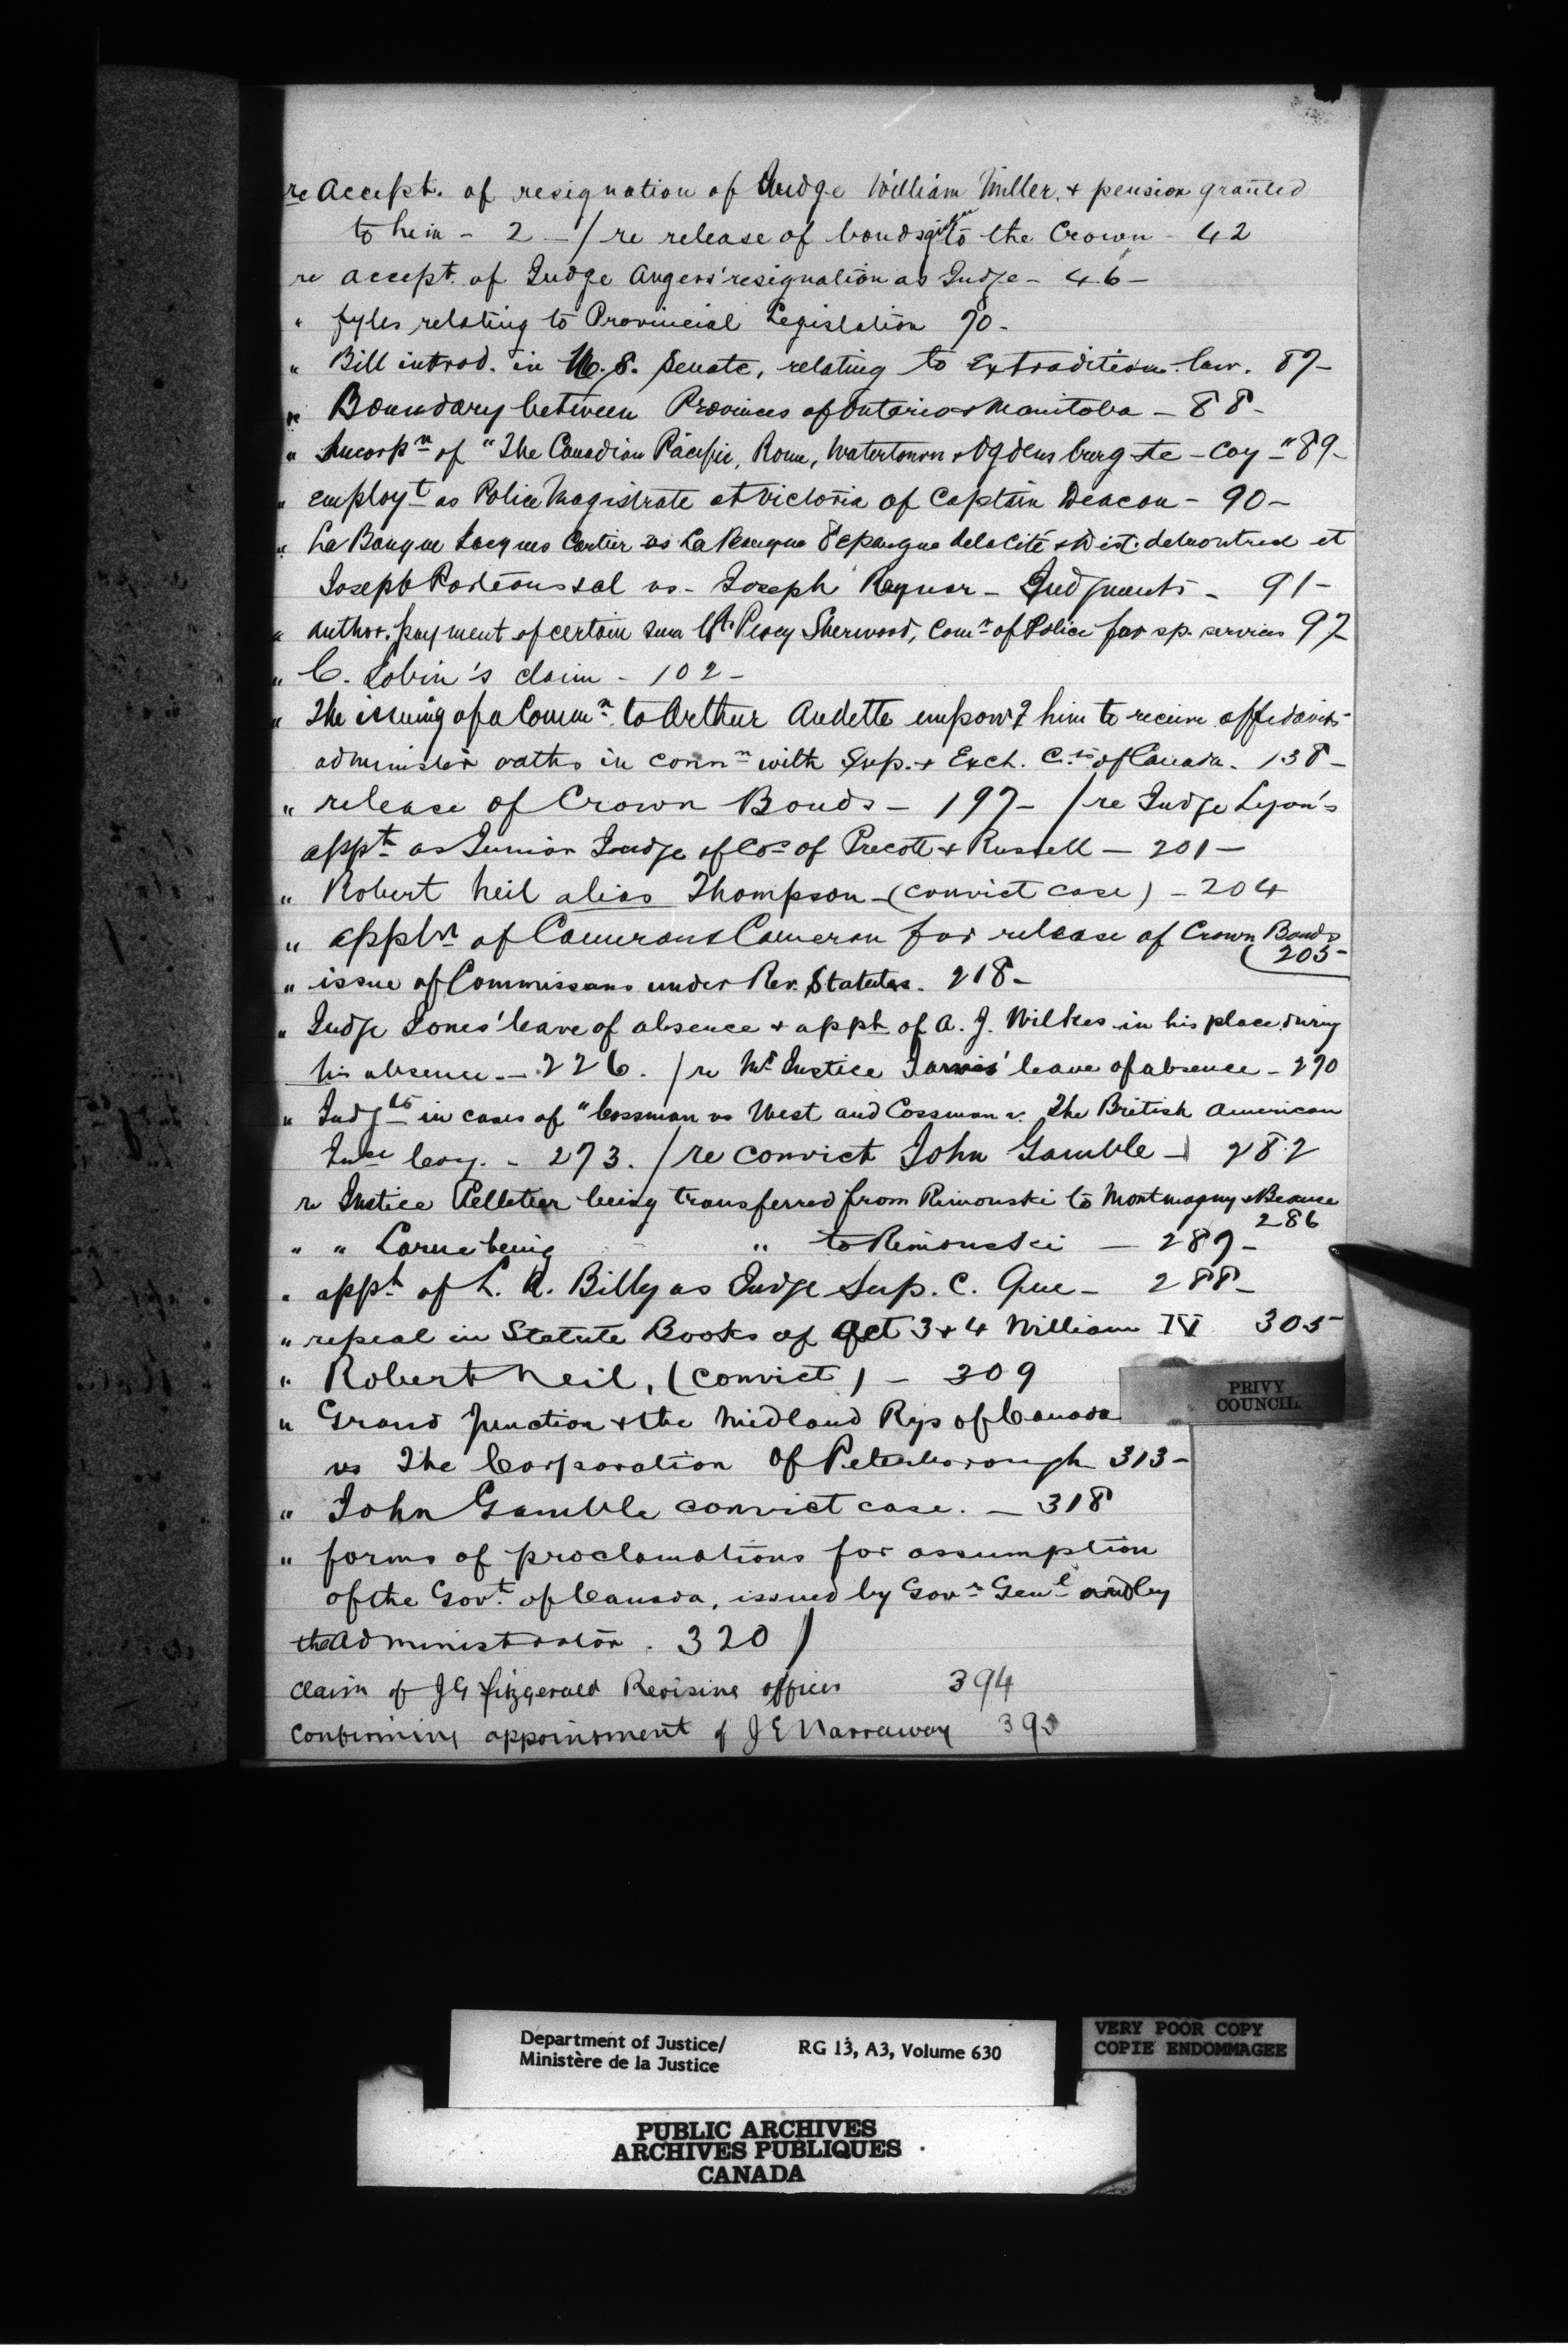 re Accept. of resignation of Judge William Miller, & pension granted
to him - 2 - / re release of bonds given to the Crown - 42
re accept. of Judge Angers' resignation as Judge - 46 -
" fyles relating to Provincial Legislation 70 -
" Bill introd. in U.S. Senate, relating to Extradition law. 87 -
" Boundary between Provinces of Ontario & Manitoba - 88 -
" Incorpn of "The Canadian Pacific, Rome, Watertown & Ogdensburg - Coy" 89 -
" employt as Police Magistrate at Victoria of Captain Deacon - 90 -
" La Banque Jacques Cartier vs La Banque d'epargne de la Cité & Dist. de Montreal et
Joseph al vs - Joseph - Judgments - 91 -
" author. payment of certain sum Lt. Percy Sherwood, Comr of Police for sp. services 97
" C. Tobin's claim - 102 -
" The issuing of a Commn to Arthur Audette empowg him to receive affidavits
administer oaths in connn with Sup. & Exch. Cts of Canada. 138 -
" release of Crown Bonds - 197 - / re Judge Lyon's
appt as Junior Judge of Cos of Precott & Russell - 201 -
" Robert Neil alias Thompson - (convict case) - 204
" appln of Cameron & Cameron for release of Crown Bonds
205
" issue of Commissons under Rev. Statutes. 218 -
" Judge Jones' leave of absence & appt of A. J. Wilkes in his place during
his absence. - 226. / re Mr Justice leave of absence - 270
" Judgts in cases of "Cossman vs West and Cossman v. The British American
Ince Coy. - 273. / re convict John Gamble - 282
re Justice Pelletier being transferred from Rimouski to Montmagny & Beauce
286
" " Larue being " to Rimouski - 287 -
" appt of L. A. Billy as Judge Sup. C. Que - 288 -
" repeal in Statute Books of Act 3 & 4 William IV 305
" Robert Neil, (convict) - 309
" Grand Junction & the Midland Rys of Canada
vs The Corporation of Peterborough 313 -
" John Gamble convict case. - 318
" forms of proclamations for assumption
of the Govt. of Canada, issued by Govr Genl and by
the Administrator. 320 /
claim of J G Fitzgerald Revising officer 394
Confirming appointment of J E Narraway
PRIVY
COUNCIL
Department of Justice/
Ministère de la Justice
RG 13, A3, Volume 630
VERY POOR COPY
COPIE ENDOMMAGEE
PUBLIC ARCHIVES
ARCHIVES PUBLIQUES
CANADA